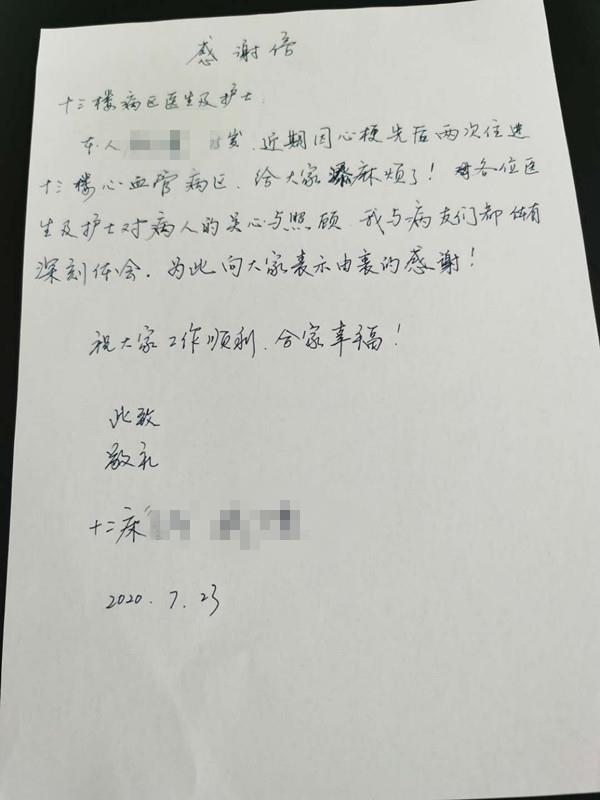 感谢信
十三楼病区医生及护士:
本人 岁,近期因心梗先后两次住进
十三楼心血管病区,给大家添麻烦了!各位医
生及护士对病人的关心与照顾,我与病友们都有
深刻体会,为此向大家表示由衷的感谢!
祝大家工作顺利,合家幸福!
此致
敬礼
十二床
2020.7.23